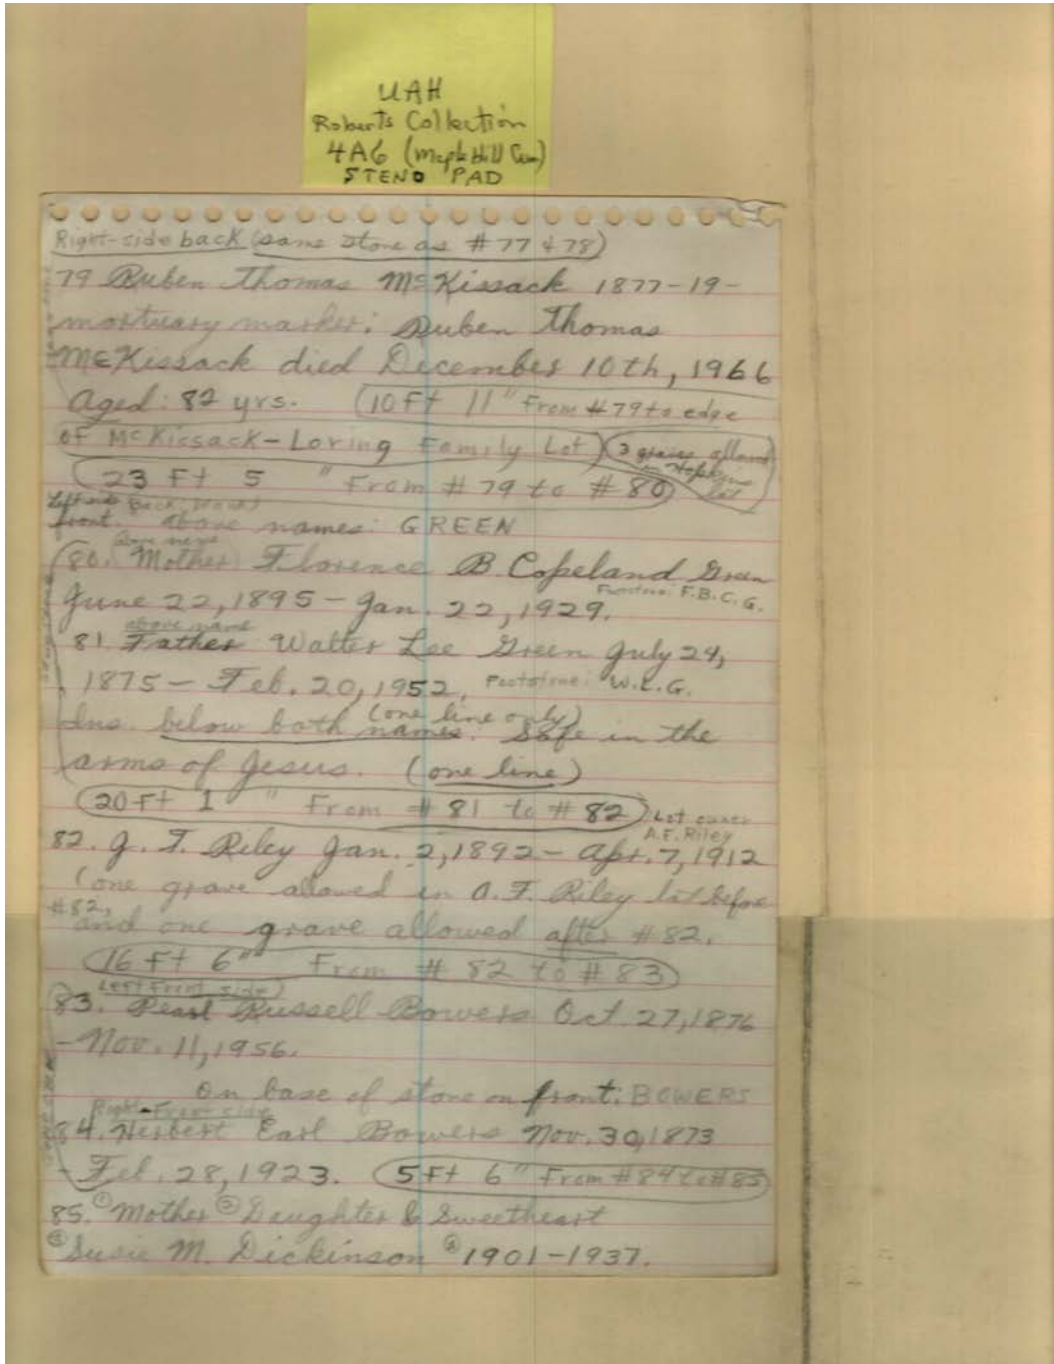 UAH
Roberts Collection
4A6 (Maple Hill Cem)
STENO PAD
Right-side back (same stone as #77 & 78)
79 Ruben Thomas McKissack 1877-19-
mortuary marker: Ruben Thomas
McKissack died December 10th, 1966
Aged: 82 yrs. (10 Ft 11" From #79 to edge
of McKissack-Loring Family Lot) (3 graves allowed
in Hopkins
lot
23 Ft 5 " From #79 to #80
Left side
front. above names: GREEN
above name
80. Mother Florence B Copeland Green
Footstone: F.B.C.G.
June 22, 1895 - Jan. 22, 1929.
above name
81. Father Walter Lee Green July 24,
1875 - Feb. 20, 1952, Footstone: W.L.G.
Ins. below both names: (one line only) Safe in the
arms of Jesus. (one line)
(20 Ft 1 " From #81 to #82) Lot owner
A.F. Riley
82. J. F. Riley Jan. 2, 1892 - Apr. 7, 1912
(one grave allowed in A. F. Riley lot before
#82,
and one grave allowed after #82.
(16 Ft 6" From #82 to #83)
Left Front side)
83. Pearl Russell Bowers Oct 27, 1876
- Nov. 11, 1956.
On base of stone on front: BOWERS
Right-Front side
84. Herbert Earl Bowers Nov. 30, 1873
- Feb. 28, 1923. (5 Ft 6" From #84 to #85)
85. ① Mother ② Daughter & Sweetheart
③ Susie M. Dickinson ④ 1901-1937.